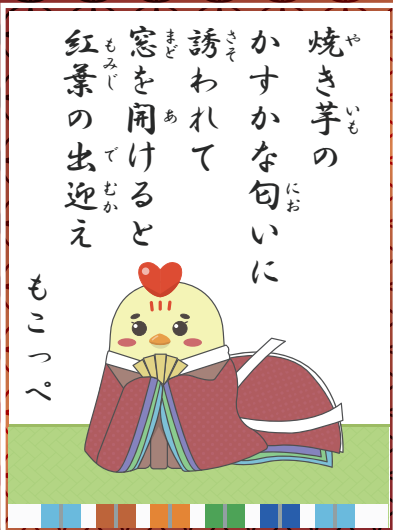 焼き芋の
かすかな匂いに
誘われて
窓を開けると
紅葉の出迎え
もこっぺ